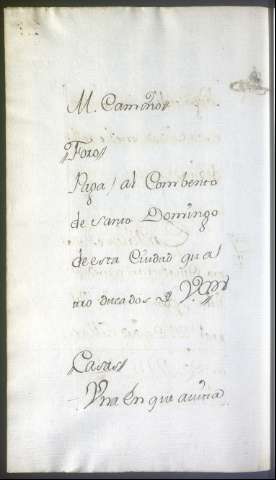 M. Camiños
Foro
Paga / al Combento
de Santo Domingo
de esta Ciudad quat
tro ducados
Casas
Vna En que auita